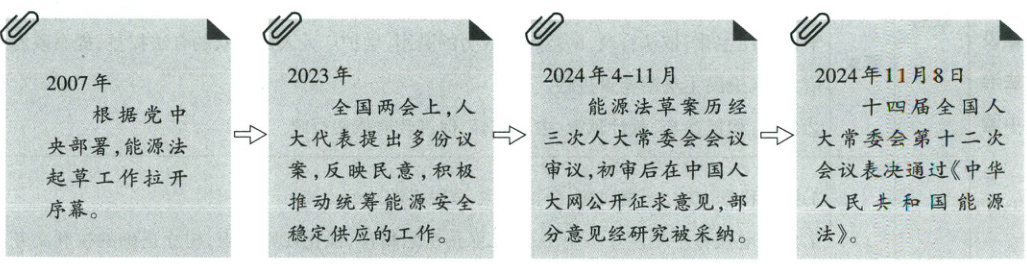 2007年
根据党中
央部署,能源法
起草工作拉开
序幕。
2023年
全国两会上,人
大代表提出多份议
案,反映民意,积极
推动统筹能源安全
稳定供应的工作。
2024年4-11月
能源法草案历经
三次人大常委会会议
审议,初审后在中国人
大网公开征求意见,部
分意见经研究被采纳。
2024年11月8日
十四届全国人
大常委会第十二次
会议表决通过《中华
人民共和国能源
法》。